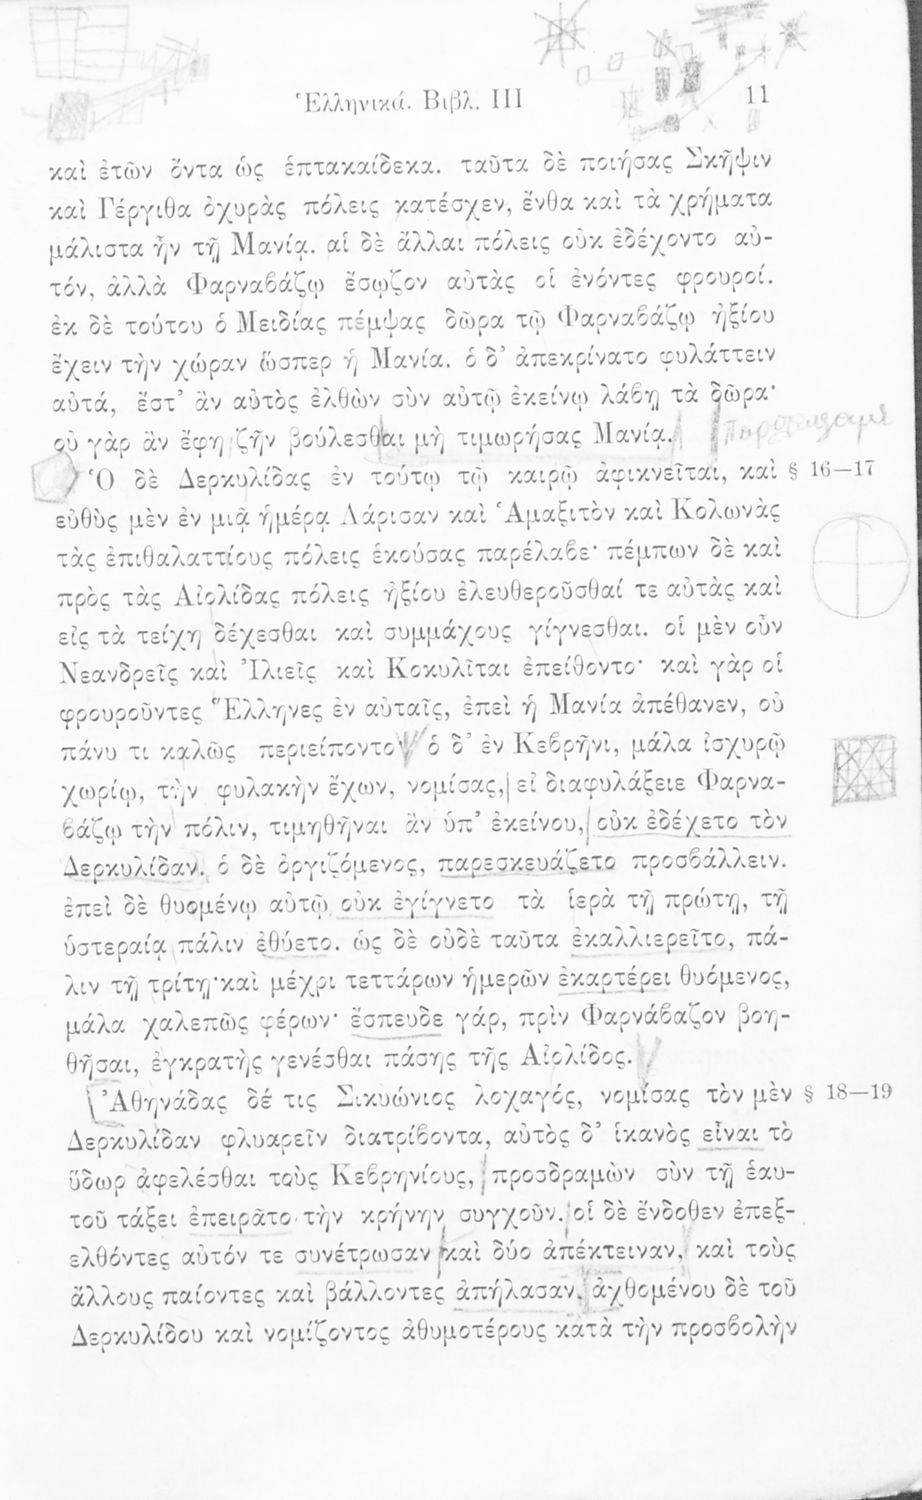 Ἑλληνικά. Βιβλ. III 11
καὶ ἐτῶν ὄντα ὡς ἑπτακαίδεκα. ταῦτα δὲ ποιήσας Σκῆψιν
καὶ Γέργιθα ὀχυρὰς πόλεις κατέσχεν, ἔνθα καὶ τὰ χρήματα
μάλιστα ἦν τῇ Μανίᾳ. αἱ δὲ ἄλλαι πόλεις οὐκ ἐδέχοντο αὐ-
τόν, ἀλλὰ Φαρναβάζῳ ἔσῳζον αὐτὰς οἱ ἐνόντες φρουροί.
ἐκ δὲ τούτου ὁ Μειδίας πέμψας δῶρα τῷ Φαρναβάζῳ ἠξίου
ἔχειν τὴν χώραν ὥσπερ ἡ Μανία. ὁ δ’ ἀπεκρίνατο φυλάττειν
αὐτά, ἔστ’ ἂν αὐτὸς ἐλθὼν σὺν αὐτῷ ἐκείνῳ λάβῃ τὰ δῶρα·
οὐ γὰρ ἂν ἔφη ζῆν βούλεσθαι μὴ τιμωρήσας Μανίᾳ.
Ὁ δὲ Δερκυλίδας ἐν τούτῳ τῷ καιρῷ ἀφικνεῖται, καὶ § 16—17
εὐθὺς μὲν ἐν μιᾷ ἡμέρᾳ Λάρισαν καὶ Ἁμαξιτὸν καὶ Κολωνὰς
τὰς ἐπιθαλαττίους πόλεις ἑκούσας παρέλαβε· πέμπων δὲ καὶ
πρὸς τὰς Αἰολίδας πόλεις ἠξίου ἐλευθεροῦσθαί τε αὐτὰς καὶ
εἰς τὰ τείχη δέχεσθαι καὶ συμμάχους γίγνεσθαι. οἱ μὲν οὖν
Νεανδρεῖς καὶ Ἰλιεῖς καὶ Κοκυλῖται ἐπείθοντο· καὶ γὰρ οἱ
φρουροῦντες Ἕλληνες ἐν αὐταῖς, ἐπεὶ ἡ Μανία ἀπέθανεν, οὐ
πάνυ τι καλῶς περιείποντο· ὁ δ’ ἐν Κεβρῆνι, μάλα ἰσχυρῷ
χωρίῳ, τὴν φυλακὴν ἔχων, νομίσας, εἰ διαφυλάξειε Φαρνα-
βάζῳ τὴν πόλιν, τιμηθῆναι ἂν ὑπ’ ἐκείνου, οὐκ ἐδέχετο τὸν
Δερκυλίδαν. ὁ δὲ ὀργιζόμενος, παρεσκευάζετο προσβάλλειν.
ἐπεὶ δὲ θυομένῳ αὐτῷ οὐκ ἐγίγνετο τὰ ἱερὰ τῇ πρώτῃ, τῇ
ὑστεραίᾳ πάλιν ἐθύετο. ὡς δὲ οὐδὲ ταῦτα ἐκαλλιερεῖτο, πά-
λιν τῇ τρίτῃ· καὶ μέχρι τεττάρων ἡμερῶν ἐκαρτέρει θυόμενος,
μάλα χαλεπῶς φέρων· ἔσπευδε γάρ, πρὶν Φαρνάβαζον βοη-
θῆσαι, ἐγκρατὴς γενέσθαι πάσης τῆς Αἰολίδος.
Ἀθηνάδας δέ τις Σικυώνιος λοχαγός, νομίσας τὸν μὲν § 18—19
Δερκυλίδαν φλυαρεῖν διατρίβοντα, αὐτὸς δ’ ἱκανὸς εἶναι τὸ
ὕδωρ ἀφελέσθαι τοὺς Κεβρηνίους, προσδραμὼν σὺν τῇ ἑαυ-
τοῦ τάξει ἐπειρᾶτο τὴν κρήνην συγχοῦν. οἱ δὲ ἔνδοθεν ἐπεξ-
ελθόντες αὐτόν τε συνέτρωσαν καὶ δύο ἀπέκτειναν, καὶ τοὺς
ἄλλους παίοντες καὶ βάλλοντες ἀπήλασαν. ἀχθομένου δὲ τοῦ
Δερκυλίδου καὶ νομίζοντος ἀθυμοτέρους κατὰ τὴν προσβολὴν